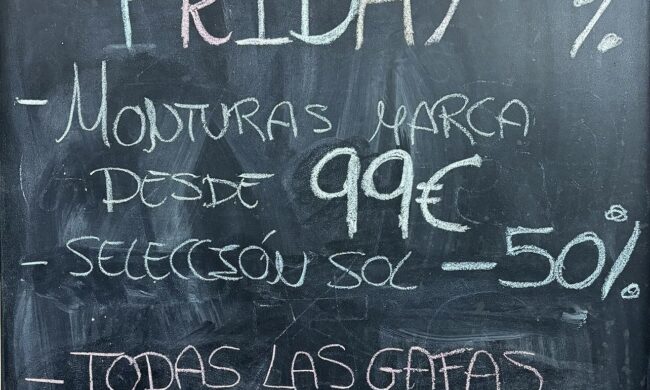 FRIDAY %
- MONTURAS MARCA
DESDE 99€
- SELECCIÓN SOL -50%
- TODAS LAS GAFAS